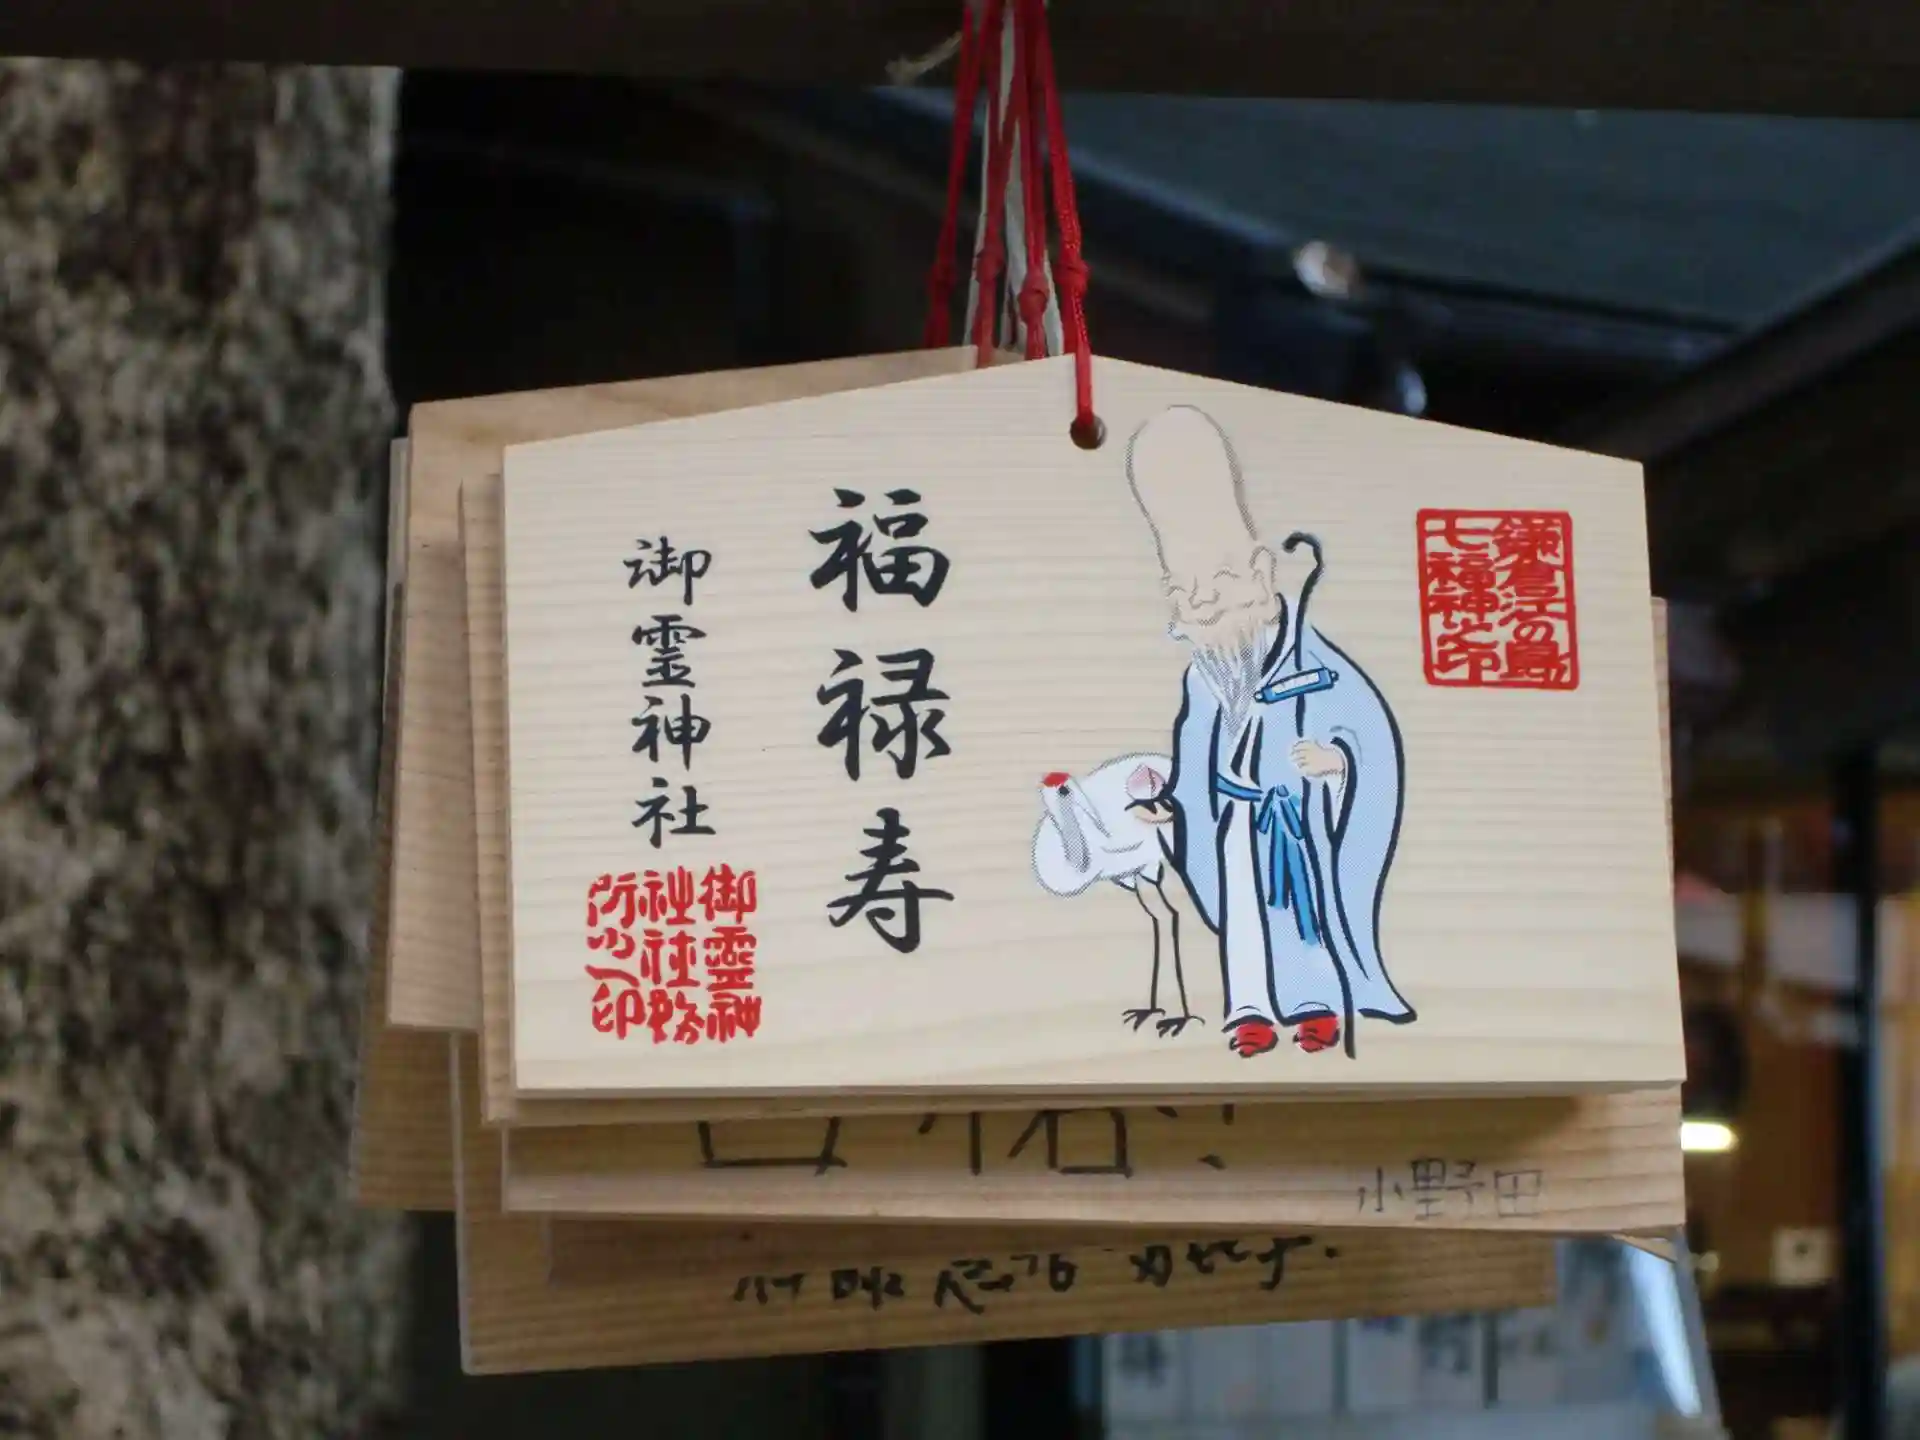 鎌倉江の島
七福神之印
福禄寿
御霊神社
御霊神
社社務
所之印
小野田